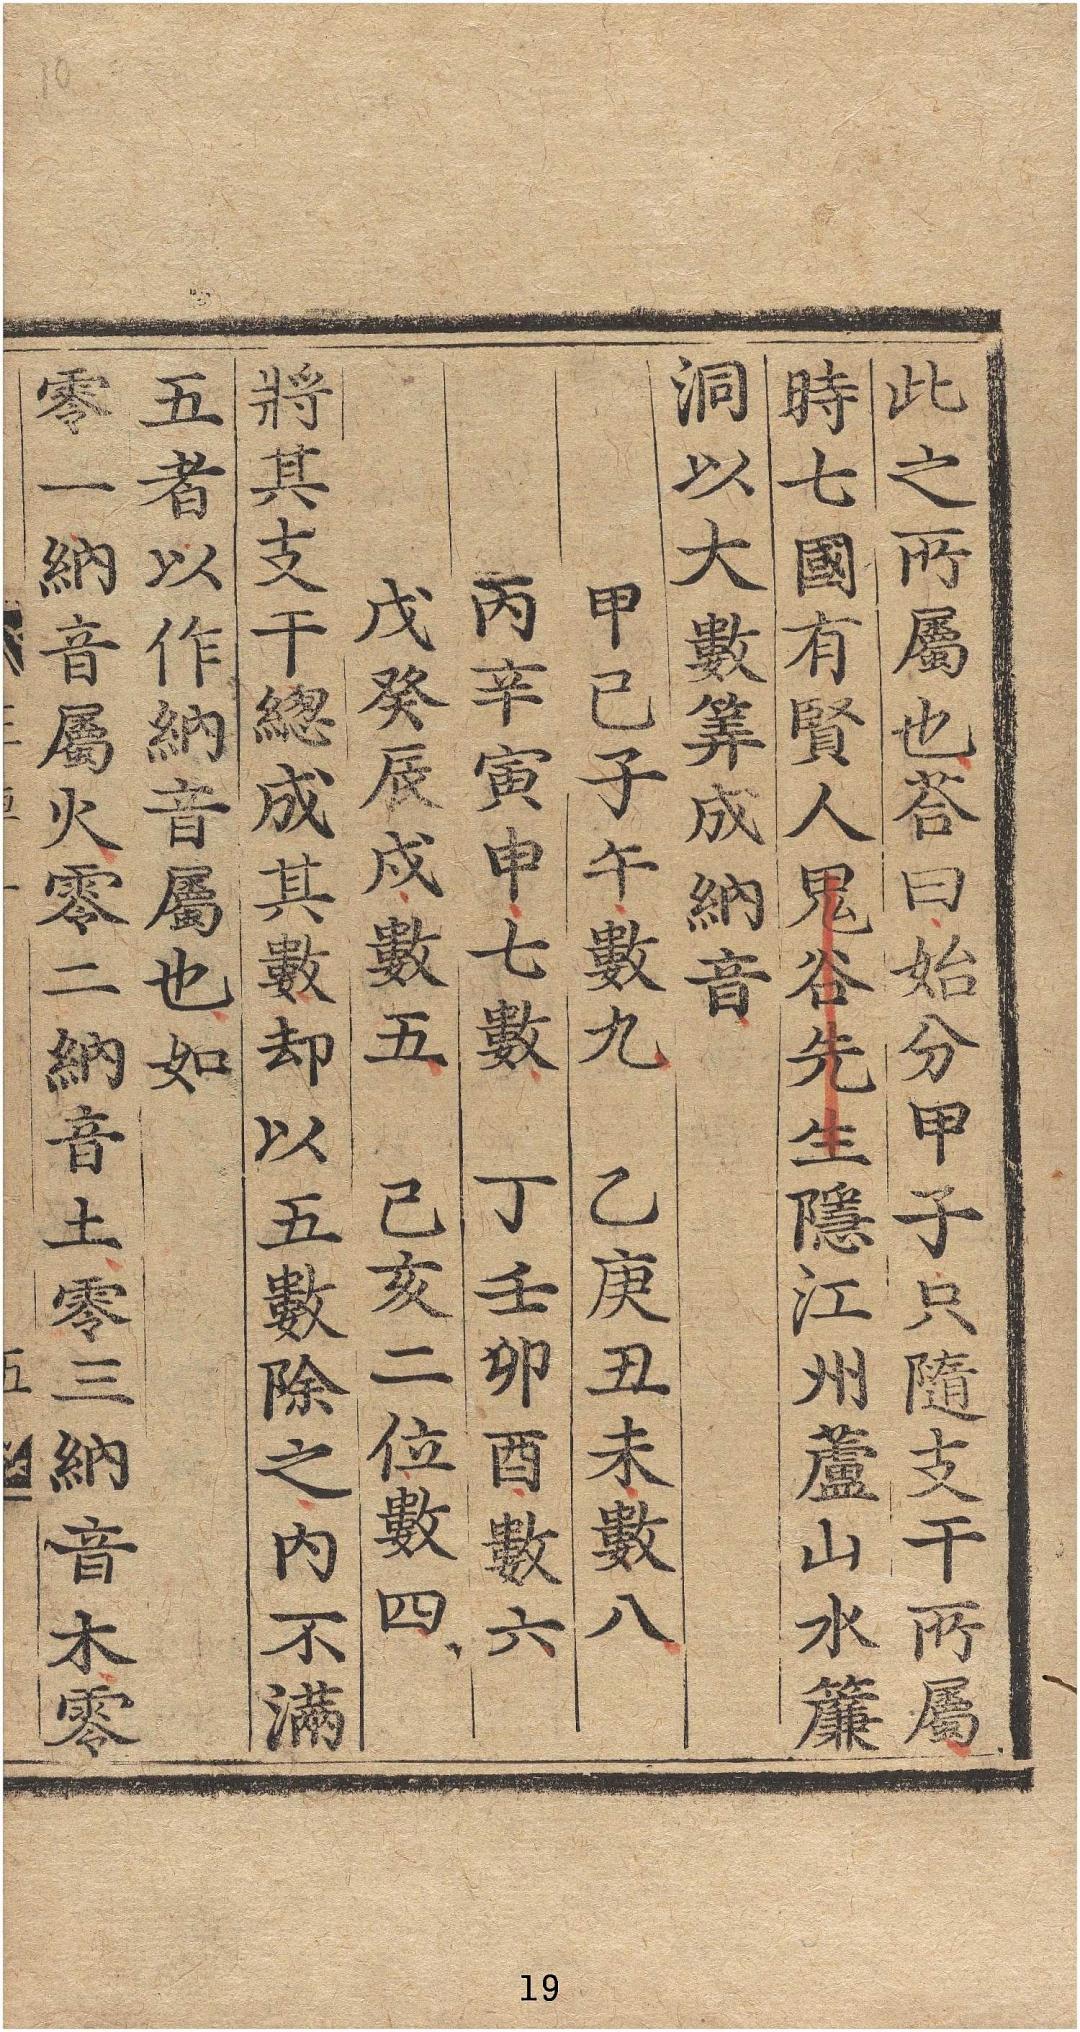 此之所屬也荅曰始分甲子只隨支干所屬
時七國有賢人鬼谷先生隱江州蘆山水簾
洞以大數筭成納音
甲己子午數九　乙庚丑未數八
丙辛寅申七數　丁壬卯酉數六
戊癸辰戌數五　己亥二位數四
將其支干總成其數却以五數除之內不滿
五者以作納音屬也如
零一納音屬火零二納音土零三納音木零
19